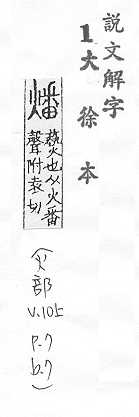 說文解字
1大徐本
燔
爇也从火番
聲附袁切
(火部
v.10上
p.7
b.7)